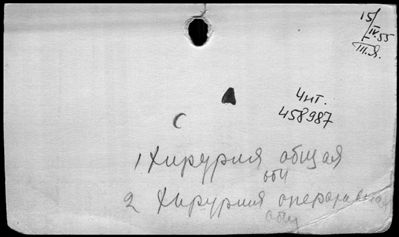 15/IV.55
III.Я.
Чит.
458987
1 Хирургия общая
общ
2 Хирургия оперативная
общ